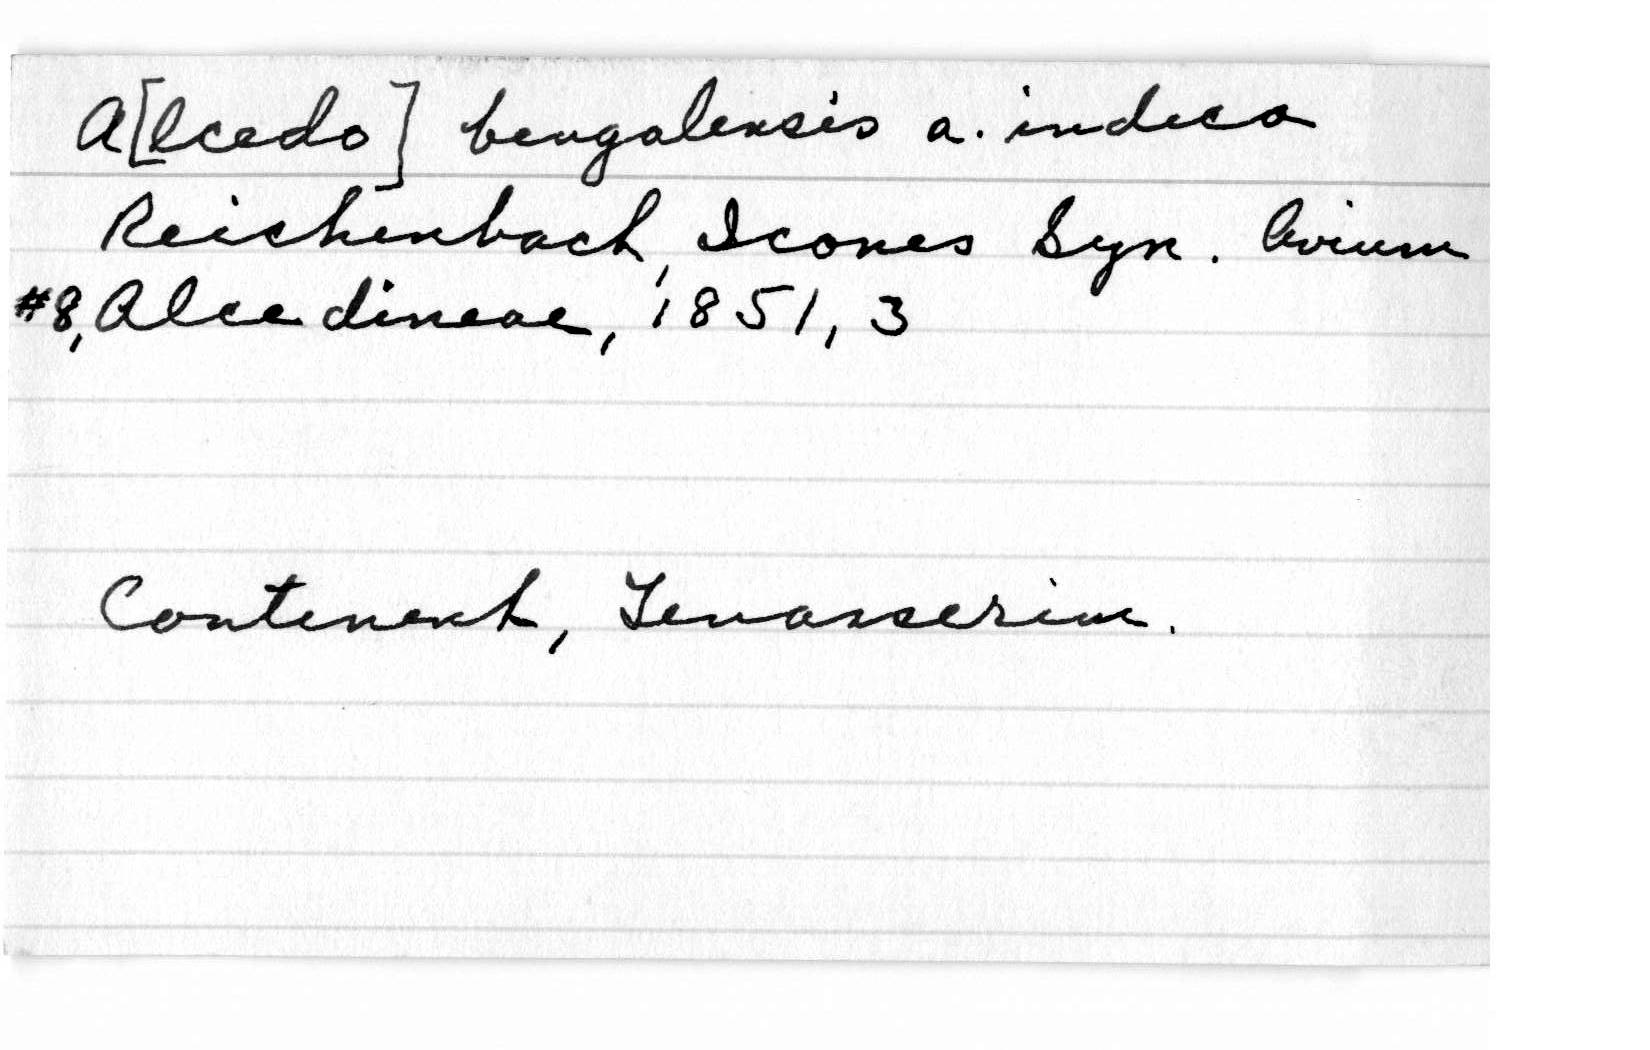 A[lcedo] bengalensis a. indica
Reichenbach, Icones Syn. Avium
#8, Alcedineae, 1851, 3
Continent, Tenasserim.